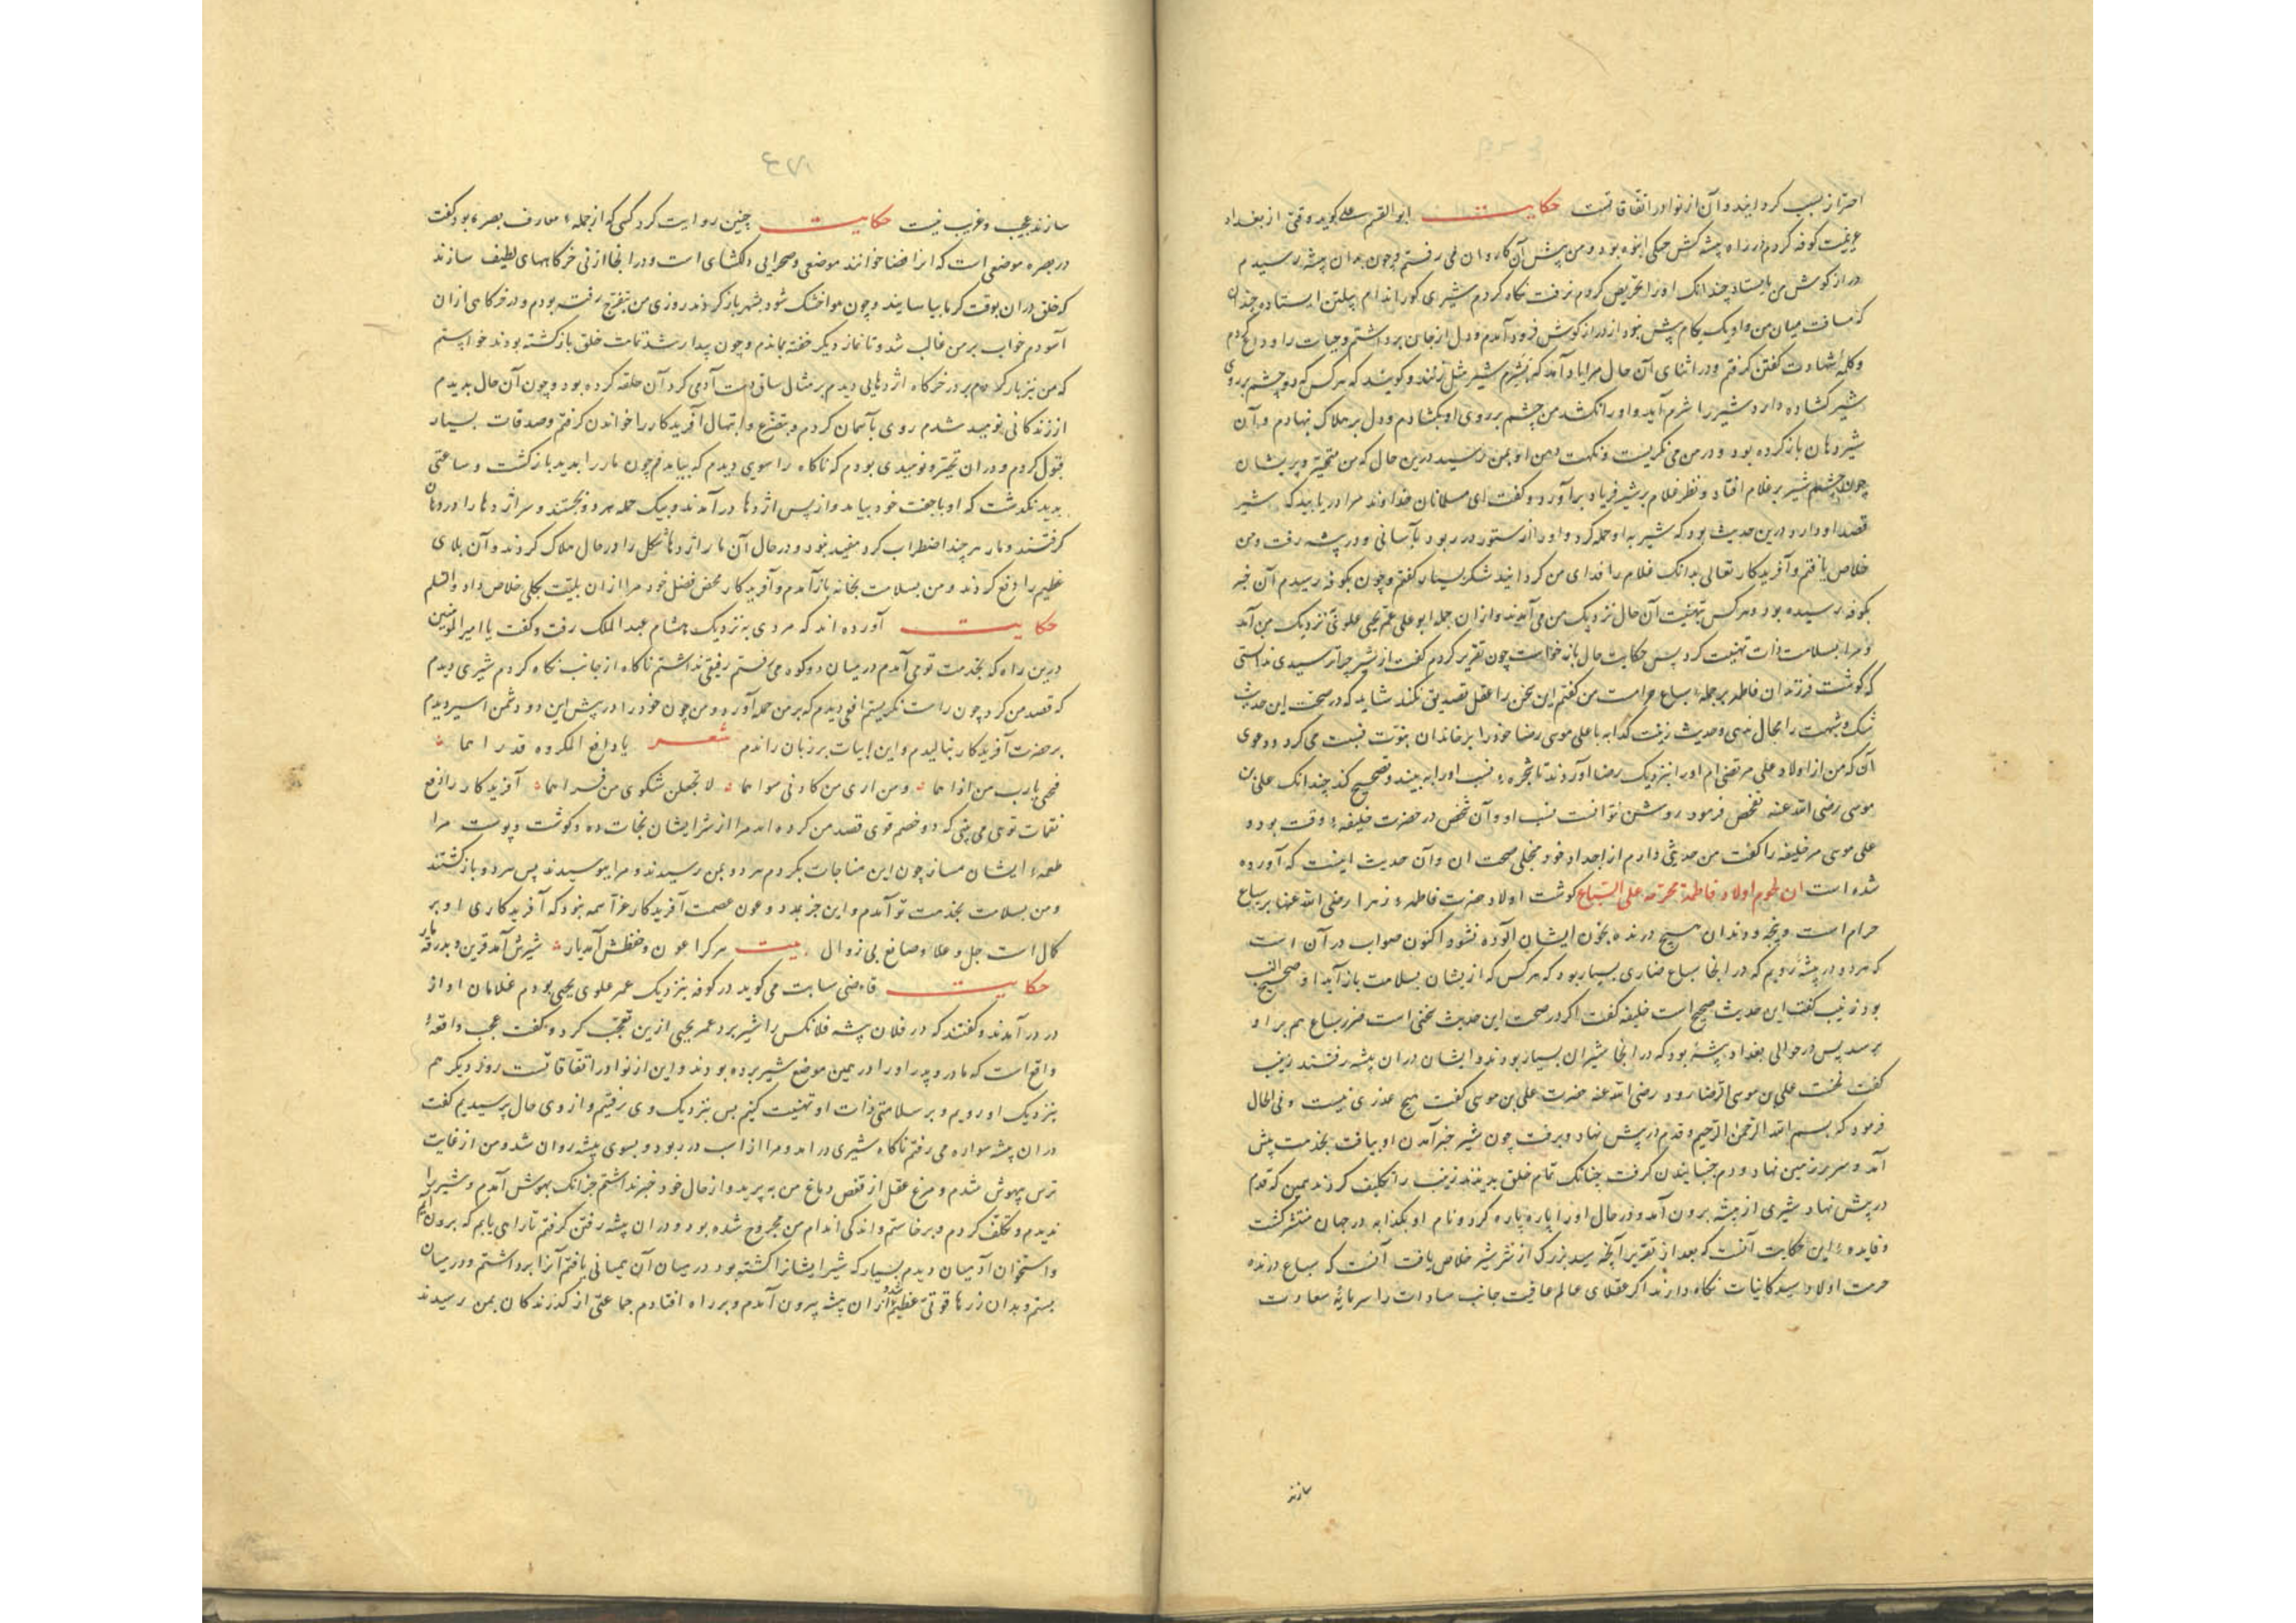 احتراز نسبت کرد ایزد و آن از نوادر اتفاقاتست حکایت ابوالقسم علی کوید وقتی از بغداد
عزیمت کوفه کردم در راه بیشه کش جنکی انبوه بود و من پیش آن کاروان می رفتم و چون بدان بیشه رسیدم
دراز کوش من بایستاد چندانک او را تحریض کردم نرفت نکاه کردم شیری کور اندام پیلتن ایستاده چندان
که مسافت میان من و او یک بکام بیش نبود از دراز کوش فرود آمدم و دل از جان برداشتم و حیات را وداع کردم
و کلمه شهادت کفتن کرفتم و در اثنای آن حال مرا یاد آمد که بشرم شیر مثل زنند و کویند که هر کس که دو چشم بر روی
شیر کشاده دارد شیر را شرم آید و او را نکشد من چشم بر روی او بکشادم و دل بر هلاک نهادم و آن
شیر دهان باز کرده بود و در من می نکریست و نکهت دهن او بمن رسید درین حال که من متحیر و پریشان
چون چشم شیر بر غلام افتاد و نظر غلام بر شیر فریاد برآورد و کفت ای مسلمانان خداوند مرا دریابید که شیر
قصد او دارد درین حدیث بود که شیر به او حمله کرد و او را از ستور در ربود بآسانی و در بیشه رفت و من
خلاص یافتم و آفریدکار تعالی بدانک غلام را فدای من کردانید شکر بسیار کفتم و چون بکوفه رسیدم آن خبر
بکوفه رسیده بود و هر کس بتهنیت آن حال نزدیک من می آمدند و از آن جمله ابو علی عمر یحیی علوی نزدیک من آمد
و مرا بسلامت ذات تهنیت کرد پس حکایت حال باز خواست چون تقریر کردم کفت از شیر چرا ترسیدی ندانستی
که کوشت فرزندان فاطمه بر جمله سباع حرامست من کفتم این سخن را عقل تصدیق نکند شاید که در صحت این حدیث
شک و شبهت را مجال نهی و حدیث زینب کذابه با علی موسی رضا خود را بر خاندان نبوت نسبت می کرد و دعوی
آن که من از اولاد علی مرتضی ام او را بنزدیک رضا آوردند تا شجره نسب او را به بیند و تصحیح کند چندانک علی بن
موسی رضی الله عنه تفحص فرمود روشن نتوانست نسب او و آن شخص در حضرت خلیفه وقت بود و
علی موسی مر خلیفه را کفت من حدیثی دارم از اجداد خود محلی صحت آن و آن حدیث اینست که آورده
شده است ان لحوم اولاد فاطمة محرمة علی السباع کوشت اولاد حضرت فاطمه زهرا رضی الله عنها بر سباع
حرام است و پنجه و دندان هیچ درنده بخون ایشان آلوده نشود اکنون صواب در آن است
که هر دو در بیشه رویم که در آنجا سباع ضاری بسیار بود که هر کس که از بشان بسلامت باز آید او صحیح النسب
بود زینب کفت این حدیث صحیح است خلیفه کفت اکر در صحت این حدیث سخنی است ضرر سباع هم بر او
برسد پس در حوالی بغداد بیشه بود که در آنجا شیران بسیار بودند و ایشان در آن بیشه رفتند زینب
کفت نخست علی بن موسی الرضا رود رضی الله عنه حضرت علی بن موسی کفت هیچ عذری نیست و فی الحال
فرمود که بسم الله الرحمن الرحیم و قدم در پیش نهاد و برفت چون شیر خبر آمدن او بیافت بخدمت پیش
آمد و سر بر زمین نهاد و دم جنبانیدن کرفت چنانک تمام خلق بدیدند زینب را تکلیف کردند همین که قدم
در پیش نهاد شیری از بیشه برون آمد و در حال او را پاره پاره کرد و نام او بکذابه در جهان منتشر کشت
و فایده این حکایت آنست که بعد از تقریر آنچه سید بزرک از شر شیر خلاص یافت آنست که سباع درنده
حرمت اولاد سید کاینات نکاه دارند اکر عقلای عالم عاقبت جانب سادات را سرمایه سعادت
سازند
سازند عجیب و غریب نیست حکایت چنین روایت کرد کسی که از جمله معارف بصره بود کفت
در بصره موضعی است که انرا فضا خوانند موضعی و صحرایی دلکشای است و در آنجا از نی خرکاههای لطیف سازند
که خلق در ان بوقت کرما بیاسایند و چون هوا خنک شود بشهر باز کردند روزی من بتفرج رفته بودم و در خرکاهی ازان
آسودم خواب بر من غالب شد و تا نماز دیکر خفته بماندم و چون بیدار شدم تمامت خلق بازکشته بودند خواستم
که من نیز باز کردم بر در خرکاه اژدهایی دیدم بر مثال ساق دست آدمی کرد آن حلقه کرده بود و چون آن حال بدیدم
از زندکانی نومید شدم روی بآسمان کردم و بتضرع و ابتهال آفریدکار را خواندن کرفتم و صدقات بسیار
قبول کردم و در ان تحیر و نومیدی بودم که ناکاه راسوی دیدم که بیامد چون مار را بدید بازکشت و ساعتی
بدید نکذشت که او با جفت خود بیامد و از پس اژدها درآمدند و بیک حمله هر دو بجستند و سر اژدها را در دهان
کرفتند و مار هر چند اضطراب کرد مفید نبود و در حال آن مار اژدها شکل را در حال هلاک کردند و آن بلای
عظیم را دفع کردند و من بسلامت بخانه باز آمدم و آفریدکار محض فضل خود مرا ازان بلیت بکلی خلاص داد والسلم
حکایت آورده اند که مردی به نزدیک هشام عبد الملک رفت و کفت یا امیر المومنین
درین راه که بخدمت تو می آمدم در میان دو کوه می رفتم رفیقی نداشتم ناکاه از جانب نکاه کردم شیری دیدم
که قصد من کرد چون راست نکریستم افعی دیدم که بر من حمله آورد و من چون خود را در پیش این دو دشمن اسیر دیدم
بر حضرت آفریدکار بنالیدم و این ابیات بر زبان راندم شعر یا دافع المکروه قد را هما
فنجنی یارب من اذا هما و من اری من کادنی سواهما لا تجعلن شکوی من قرا هما آفریدکار رافع
نقمات توی می بینی که دو خصم قوی قصد من کرده اند مرا از شر ایشان نجات ده و کوشت و پوست مرا
طعمه ایشان مساز چون این مناجات بکردم هر دو بمن رسیدند و مرا ببوسیدند پس هر دو بازکشتند
و من بسلامت بخدمت تو آمدم و این جز بمدد و عون عصمت آفریدکار عز اسمه نبود که آفریدکاری او بر
کمال است جل و علا و صانع بی زوال بیت هر کرا عون و حفظش آمد یار شیرش آمد قرین و بدرقه مار
حکایت قاضی سابت می کوید در کوفه بنزدیک عمر علوی یحیی بودم غلامان او از
در درآمدند و کفتند که در فلان بیشه فلانکس را شیر برد عمر یحیی ازین تعجب کرد و کفت عجب واقعه
واقع است که مادر و پدر او را در همین موضع شیر برده بودند و این از نوادر اتفاقاتست روز دیکر هم
بنزدیک او رویم و بر سلامتی ذات او تهنیت کنیم پس بنزدیک وی رفتیم و از وی حال پرسیدیم کفت
در ان بیشه سواره می رفتم ناکاه شیری درامد و مرا از اسب در ربود و بسوی بیشه روان شد و من از غایت
ترس بیهوش شدم و مرغ عقل از قفص دماغ من به پرید و از حال خود خبر نداشتم جز انک بهوش آمدم و شیر را
ندیدم و تکلف کردم و برخاستم و اندکی اندام من مجروح شده بود و در ان بیشه رفتن کرفتم تا راهی یابم که برون آیم
و استخوان آدمیان دیدم بسیار که شیر ایشانرا کشته بود در میان آن همیانی یافتم آنرا برداشتم و در میان
بستم و بدان زرها قوتی عظیم شد و ازان بیشه بیرون آمدم و بر راه افتادم جماعتی از کذرندکان بمن رسیدند